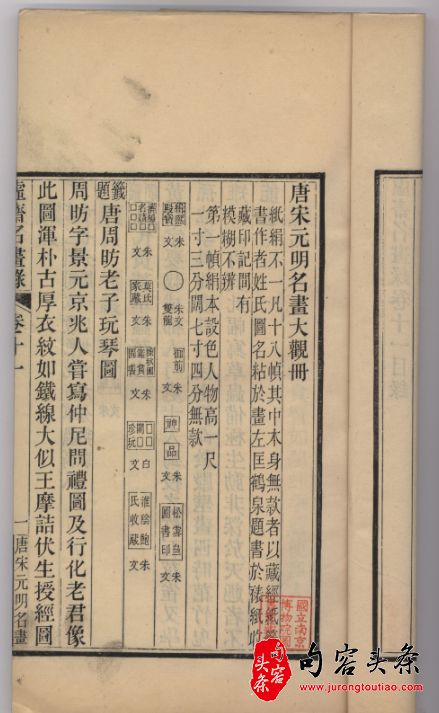 唐宋元明名畫大觀冊
紙絹不一凡十八幀其中本身無款者以藏經紙
書作者姓氏圖名粘於畫左匡鶴泉題書於裱紙
藏印記間有
模糊不辨
第一幀絹本設色人物高一尺
一寸三分闊七寸四分無款
朱
文
朱文
雙龍
御前
朱
文
神
品
朱
文
松雪
圖書印
朱
文
朱
文
朱
文
家藏
朱
文
白
文
珍玩
淮陰鮑
氏收藏
朱
文
籤
題
唐周昉老子玩琴圖
周昉字景元京兆人嘗寫仲尼問禮圖及行化老君像
此圖渾朴古厚衣紋如鐵線大似王摩詰伏生授經圖
虛齋名畫錄
卷十一
一
唐宋元明名畫
國立南京
博物院圖
句容头条
头条
www.jurongtoutiao.com